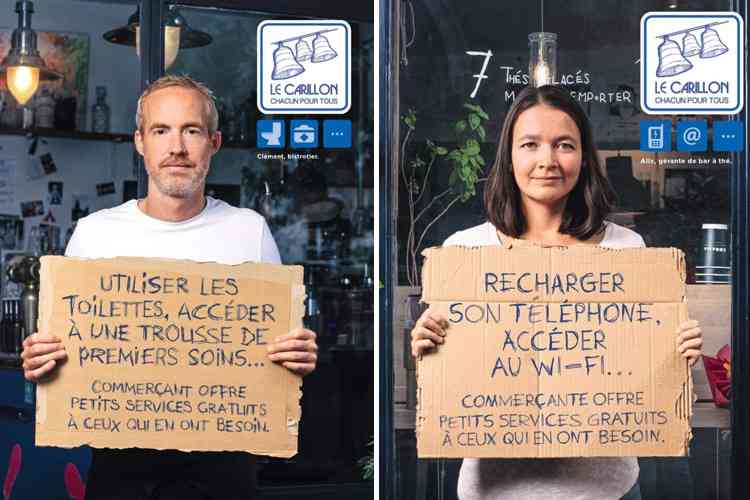 LE CARILLON
CHACUN POUR TOUS
Clément, bistrotier.
UTILISER LES
TOILETTES, ACCÉDER
À UNE TROUSSE DE
PREMIERS SOINS...
COMMERÇANT OFFRE
PETITS SERVICES GRATUITS
À CEUX QUI EN ONT BESOIN.
7 THÉS GLACÉS
EMPORTER
LE CARILLON
CHACUN POUR TOUS
@
Alix, gérante de bar à thé.
RECHARGER
SON TÉLÉPHONE,
ACCÉDER
AU WI-FI...
COMMERÇANTE OFFRE
PETITS SERVICES GRATUITS
À CEUX QUI EN ONT BESOIN.